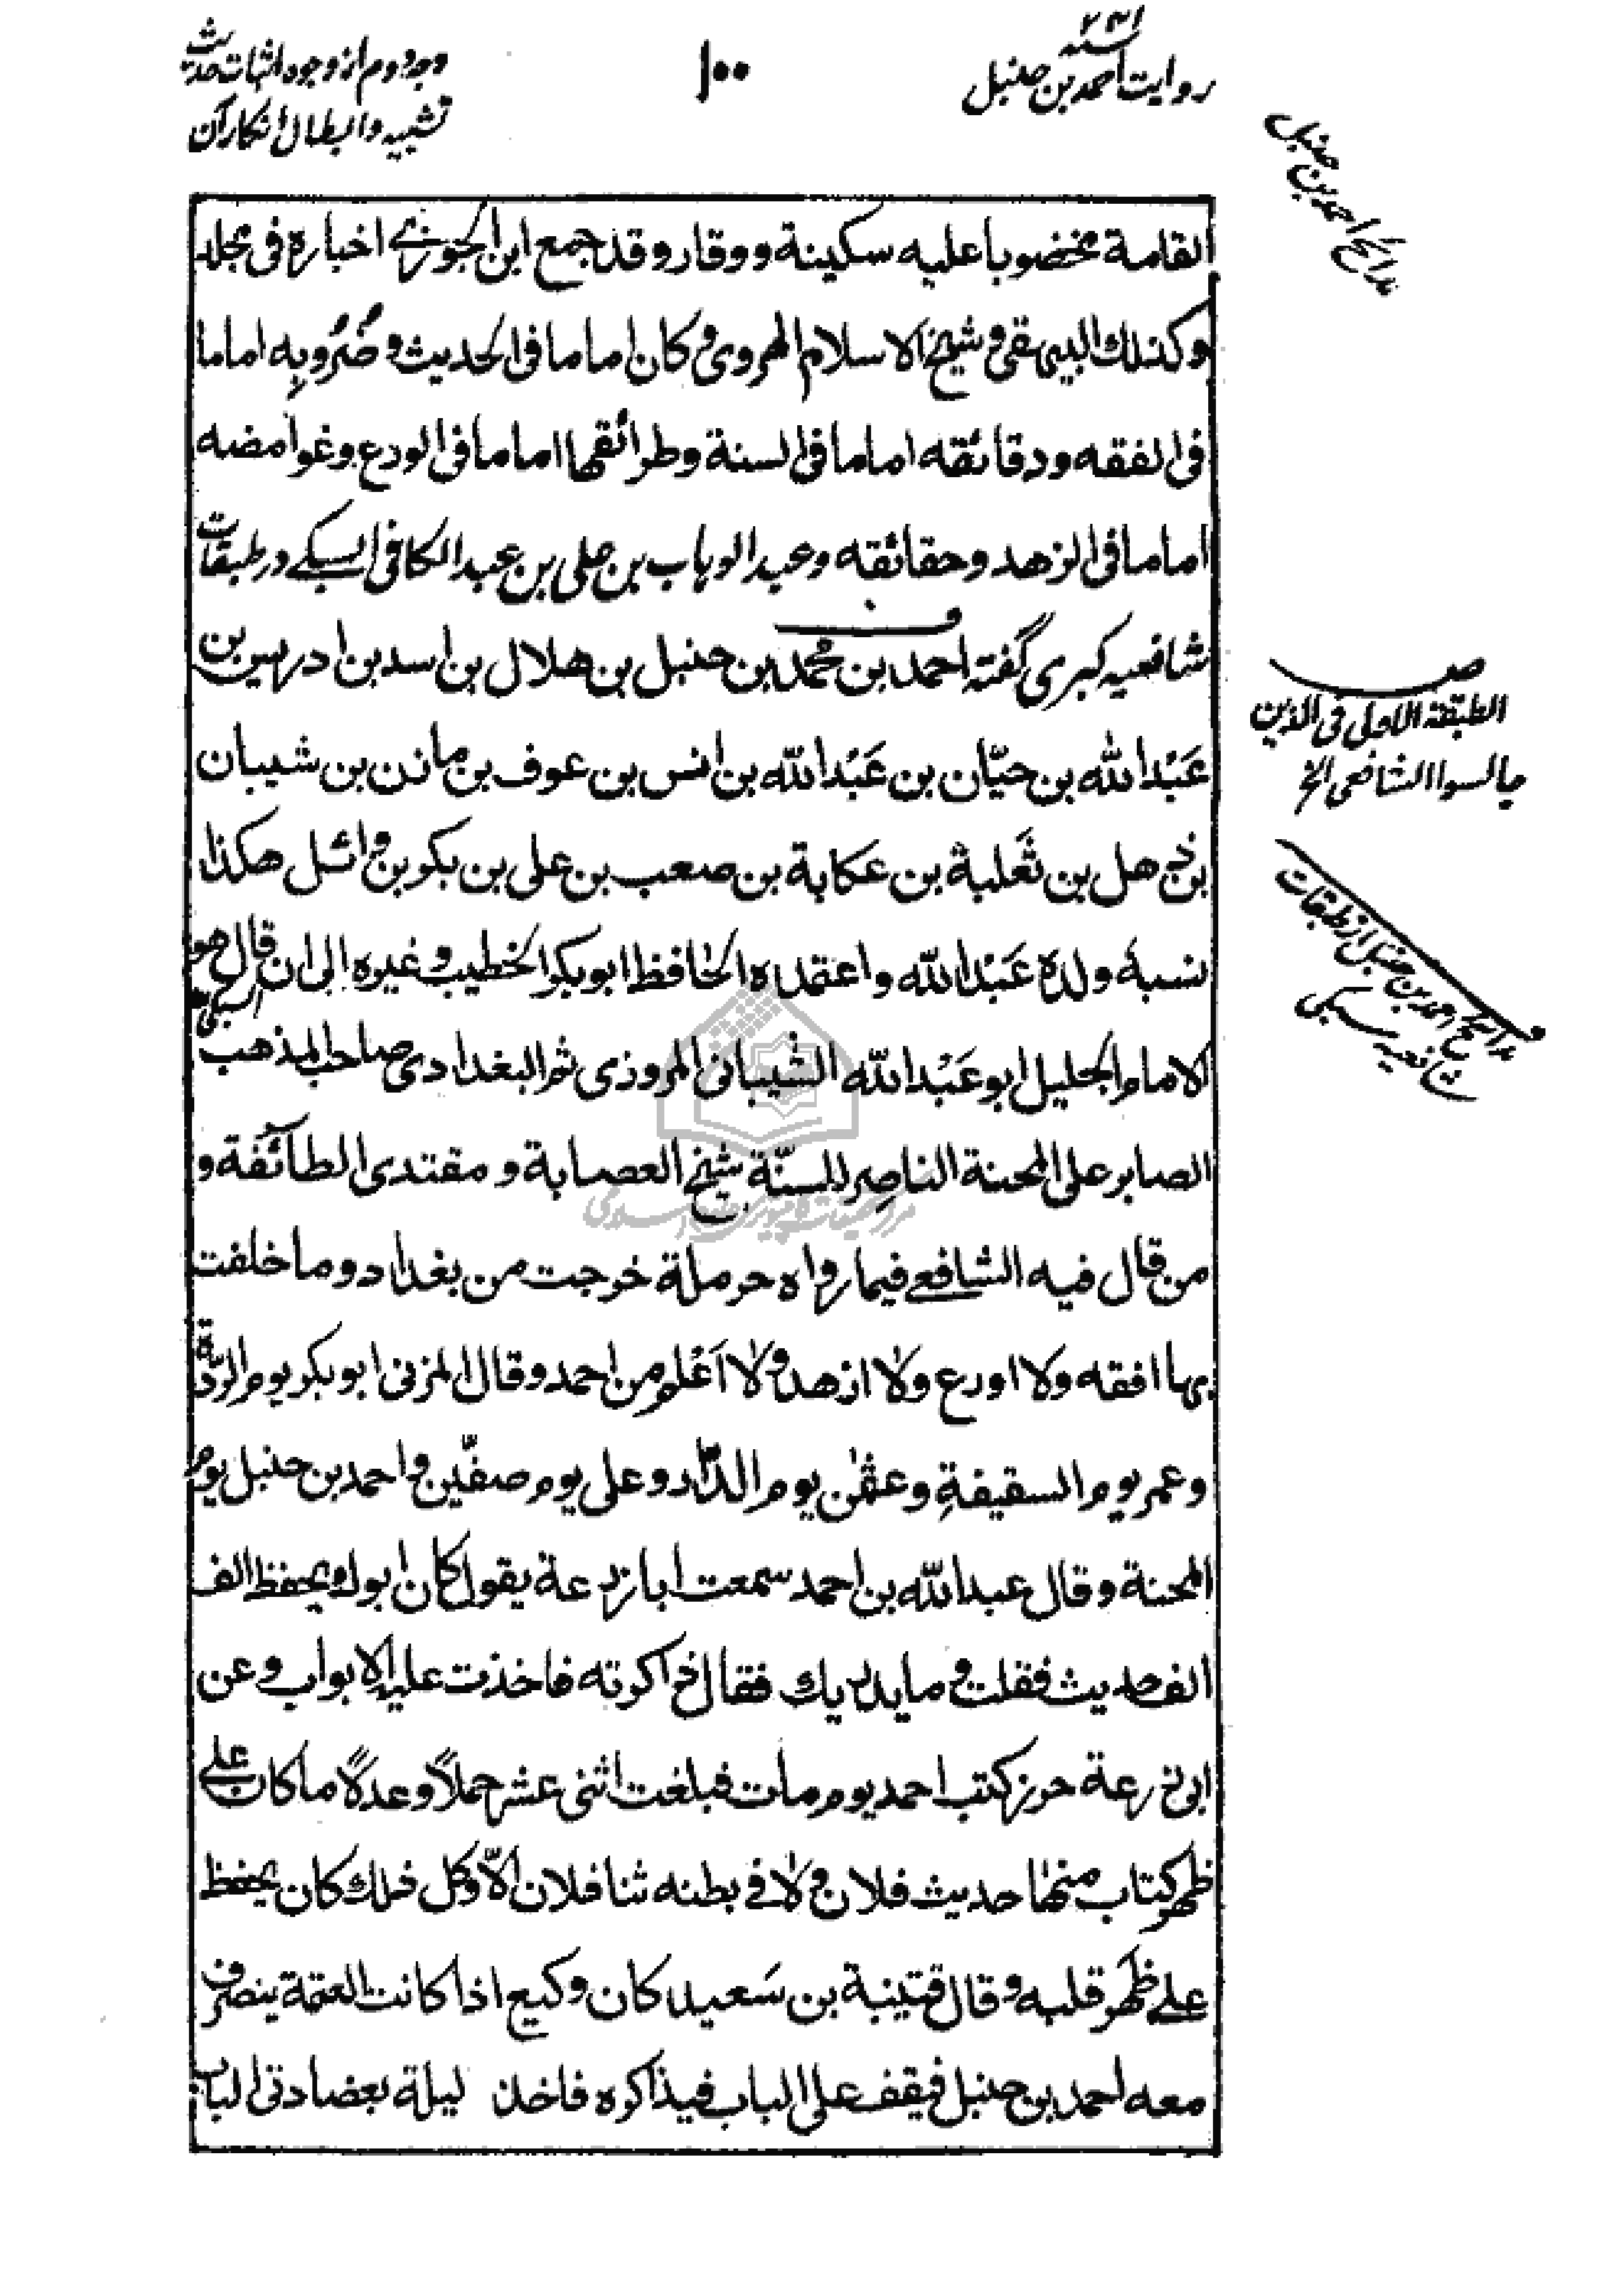 روایت احمد بن حنبل
سنه ۲۴۱
۱۰۰
وجه دوم از وجوه اثبات حدیث
تشبیه و ابطال انکار آن
مدائح احمد بن حنبل
القامة مخضوبا علیه سکینة ووقار وقد جمع ابن الجوزی اخباره فی مجلد
وکذلک البیهقی وشیخ الاسلام الهروی وکان اماما فی الحدیث وضُرُوبِه اماما
فی الفقه ودقائقه اماما فی السنة وطرائقها اماما فی الورع وغوامضه
اماما فی الزهد وحقائقه وعبد الوهاب بن علی بن عبد الکافی السبکے در طبقات
شافعیه کبری گفته احمد بن محمد بن حنبل بن هلال بن اسد بن ادریس بن
عَبْد الله بن حیّان بن عَبْد الله بن انس بن عوف بن مازن بن شیبان
بن ذهل بن ثَعلبة بن عکابة بن صعب بن علی بن بکر بن وائل هکذا
نسبه ولده عَبْد الله واعتمده الحافظ ابو بکر الخطیب وغیره الی ان قال هو
السبکی
الامام الجلیل ابو عَبْد الله الشیبانی المروزی ثم البغدادی صاحب المذهب
الصابر علی المحنة الناصر للسنّة شیخ العصابة ومقتدی الطآئفة و
من قال فیه الشافعے فیما رواه حرملة خرجت من بغداد وما خلفت
بها افقه ولا اورع ولا ازهد ولا اَعْلم من احمد وقال المزنی ابو بکر یوم الردّة
وعمر یوم السقیفةِ وعثمٰن یوم الدّار وعلی یوم صفّین واحمد بن حنبل یوم
المحنة وقال عبد الله بن احمد سمعت ابا زرعة یقول کان ابوک یحفظ الف
الف حدیث فقلت وما یدریک فقال ذاکرته فاخذت علیه الابواب وعن
ابی زرعة حرز کتب احمد یوم مات فبلغت اثنی عشر حملاً وعدلاً ما کان علے
ظهر کتاب منها حدیث فلان ولا فی بطنه ثنا فلان الّا وکل ذلک کان یحفظ
علے ظَهر قلبه وقال قتیبة بن سَعید کان وکیع اذا کانت العتمة ینصرف
معه احمد بن حنبل فیقف علی الباب فیذاکره فاخذ لیلة بعضادتی الباب
صـ
الطبقة الاولی فی الذین
جالسوا الشافعی الخ
مدائح احمد بن حنبل از طبقات
شافعیه سبکی
مرکز تحقیقات کامپیوتری علوم اسلامی